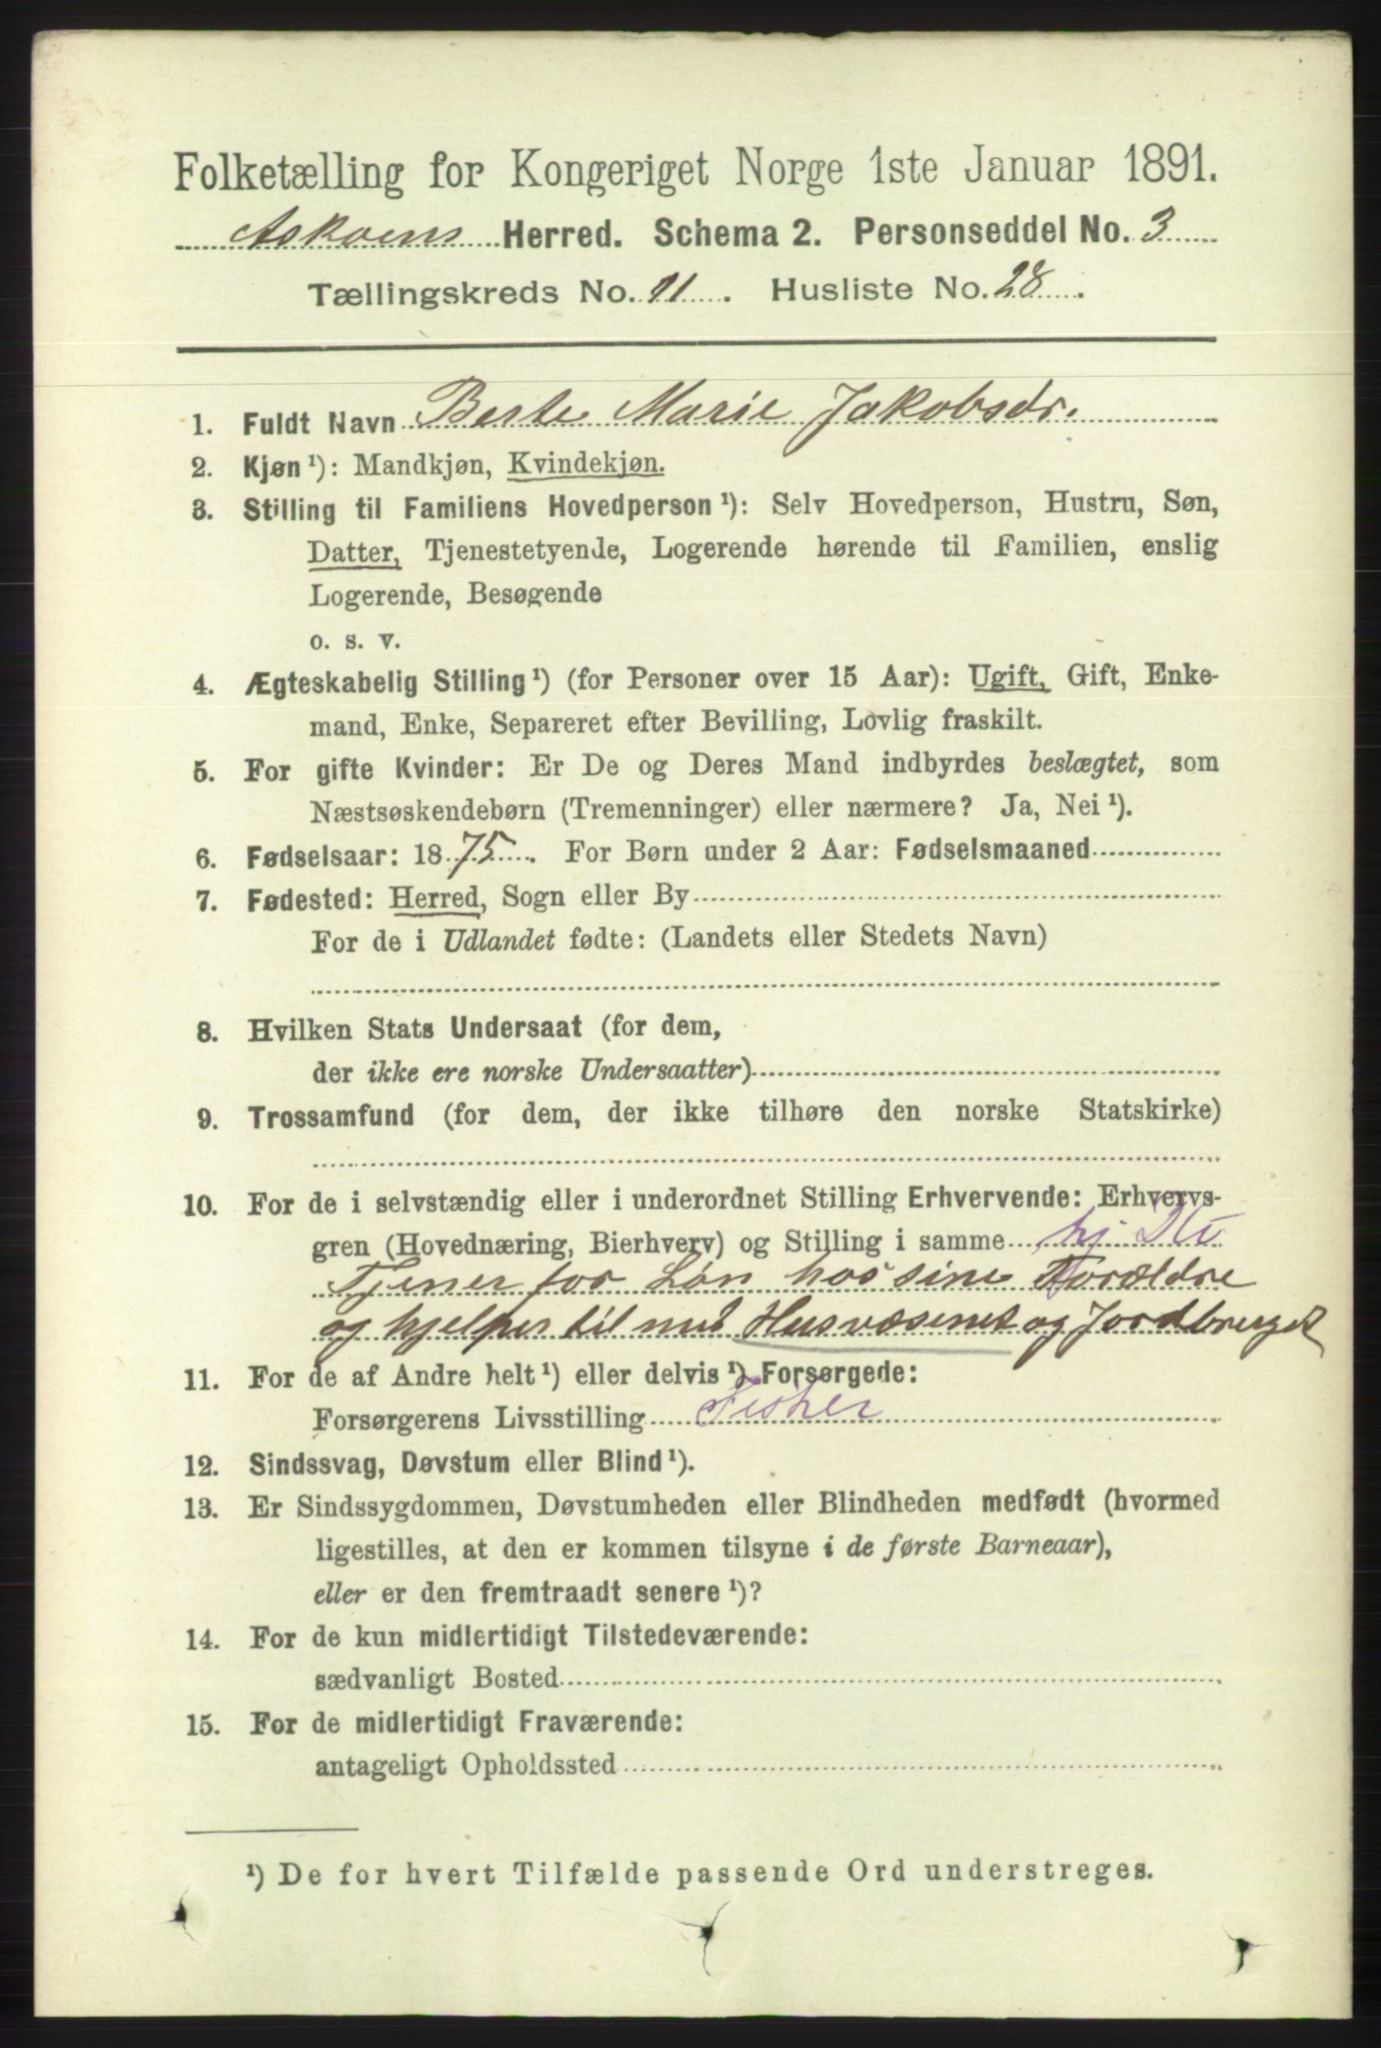 Folketælling for Kongeriget Norge 1ste Januar 1891.
Askøens Herred. Schema 2. Personseddel No. 3
Tællingskreds No. 11. Husliste No. 28.
1. Fuldt Navn Berte Marie Jakobsdr.
2. Kjøn¹): Mandkjøn, Kvindekjøn.
3. Stilling til Familiens Hovedperson¹): Selv Hovedperson, Hustru, Søn,
Datter, Tjenestetyende, Logerende hørende til Familien, enslig
Logerende, Besøgende
o. s. v.
4. Ægteskabelig Stilling¹) (for Personer over 15 Aar): Ugift, Gift, Enke-
mand, Enke, Separeret efter Bevilling, Lovlig fraskilt.
5. For gifte Kvinder: Er De og Deres Mand indbyrdes beslægtet, som
Næstsøskendebørn (Tremenninger) eller nærmere? Ja, Nei¹).
6. Fødselsaar: 1875. For Børn under 2 Aar: Fødselsmaaned
7. Fødested: Herred, Sogn eller By
For de i Udlandet fødte: (Landets eller Stedets Navn)
8. Hvilken Stats Undersaat (for dem,
der ikke ere norske Undersaatter)
9. Trossamfund (for dem, der ikke tilhøre den norske Statskirke)
10. For de i selvstændig eller i underordnet Stilling Erhvervende: Erhvervs-
gren (Hovednæring, Bierhverv) og Stilling i samme hj
Tjener for Løn hos sine Forældre
og hjelper til med Husvæsenet og Jordbruget
11. For de af Andre helt¹) eller delvis¹) Forsørgede:
Forsørgerens Livsstilling Fisker
12. Sindssvag, Døvstum eller Blind¹).
13. Er Sindssygdommen, Døvstumheden eller Blindheden medfødt (hvormed
ligestilles, at den er kommen tilsyne i de første Barneaar),
eller er den fremtraadt senere¹)?
14. For de kun midlertidigt Tilstedeværende:
sædvanligt Bosted
15. For de midlertidigt Fraværende:
antageligt Opholdssted
¹) De for hvert Tilfælde passende Ord understreges.